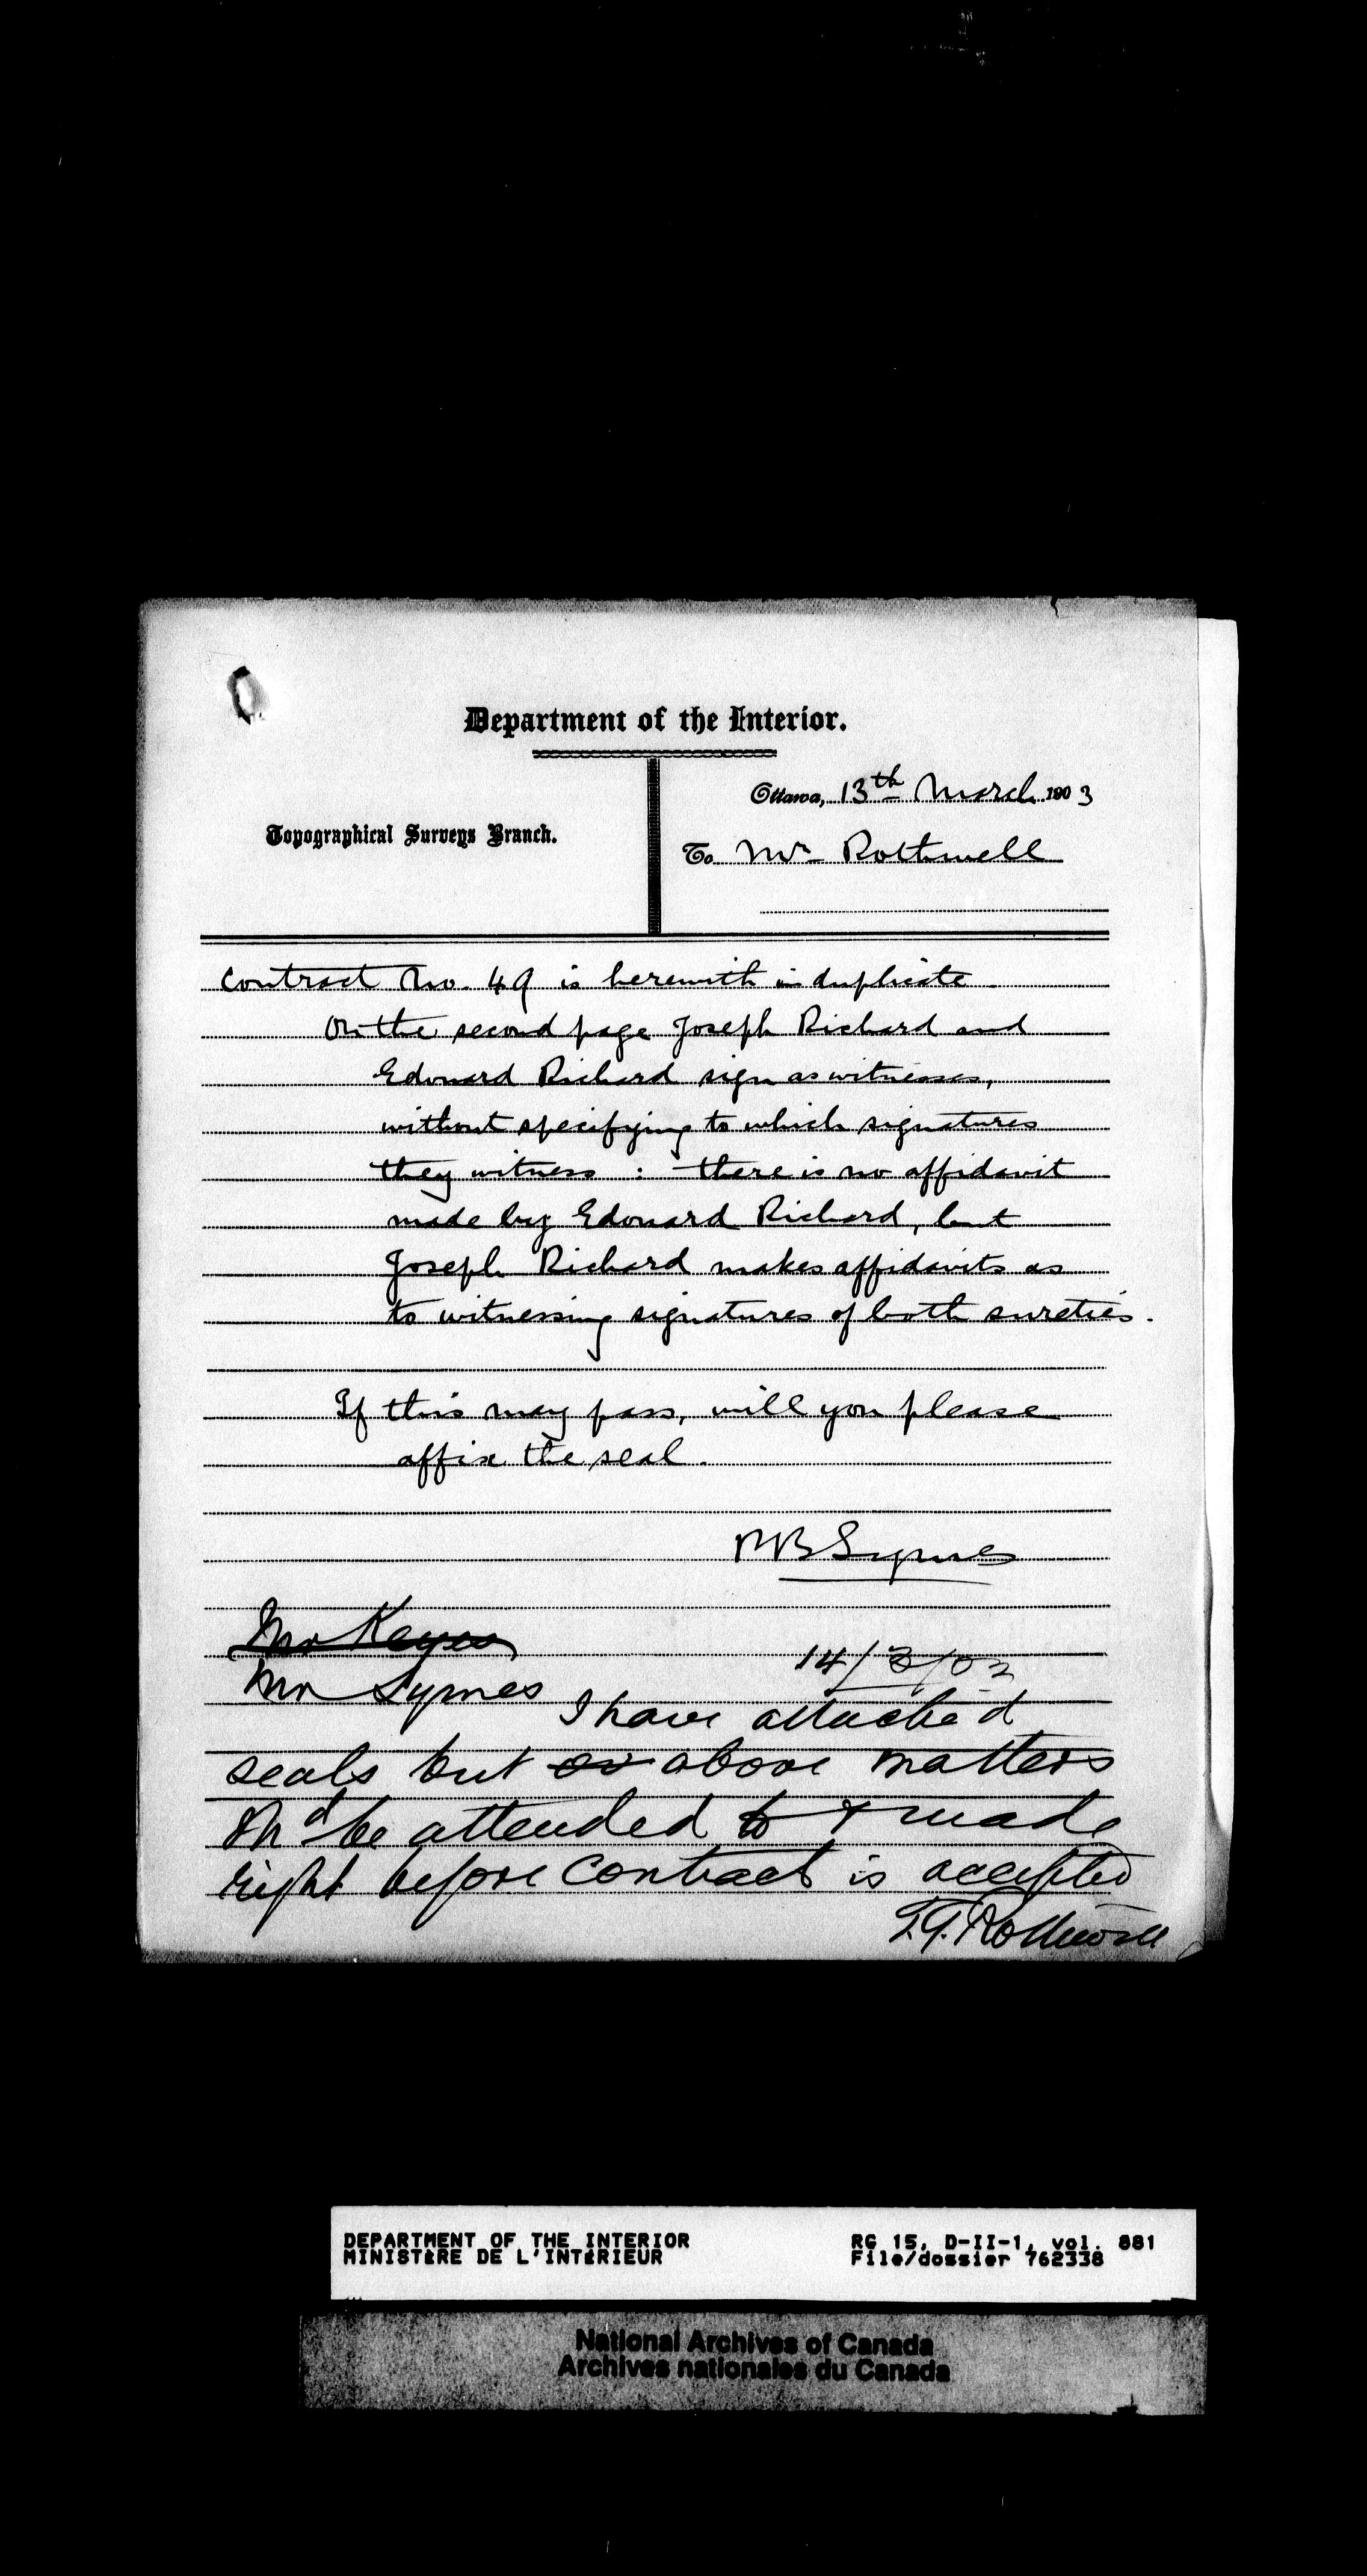 Department of the Interior.
Ottawa, 13th March 1903
Topographical Surveys Branch.
To Mr Rothwell
Contract No. 49 is herewith in duplicate.
On the second page Joseph Richard and
Edouard Richard sign as witnesses,
without specifying to which signatures
they witness : there is no affidavit
made by Edouard Richard, but
Joseph Richard makes affidavits as
to witnessing signatures of both sureties.
If this may pass, will you please
affix the seal.
Symes
Mr Keyes
14/3/03
Mr Symes
I have attached
seals but above matters
shd be attended to & made
right before contract is accepted
T.G. Rothwell
DEPARTMENT OF THE INTERIOR
MINISTÈRE DE L'INTÉRIEUR
RG 15, D-II-1, vol. 881
File/dossier 762338
National Archives of Canada
Archives nationales du Canada